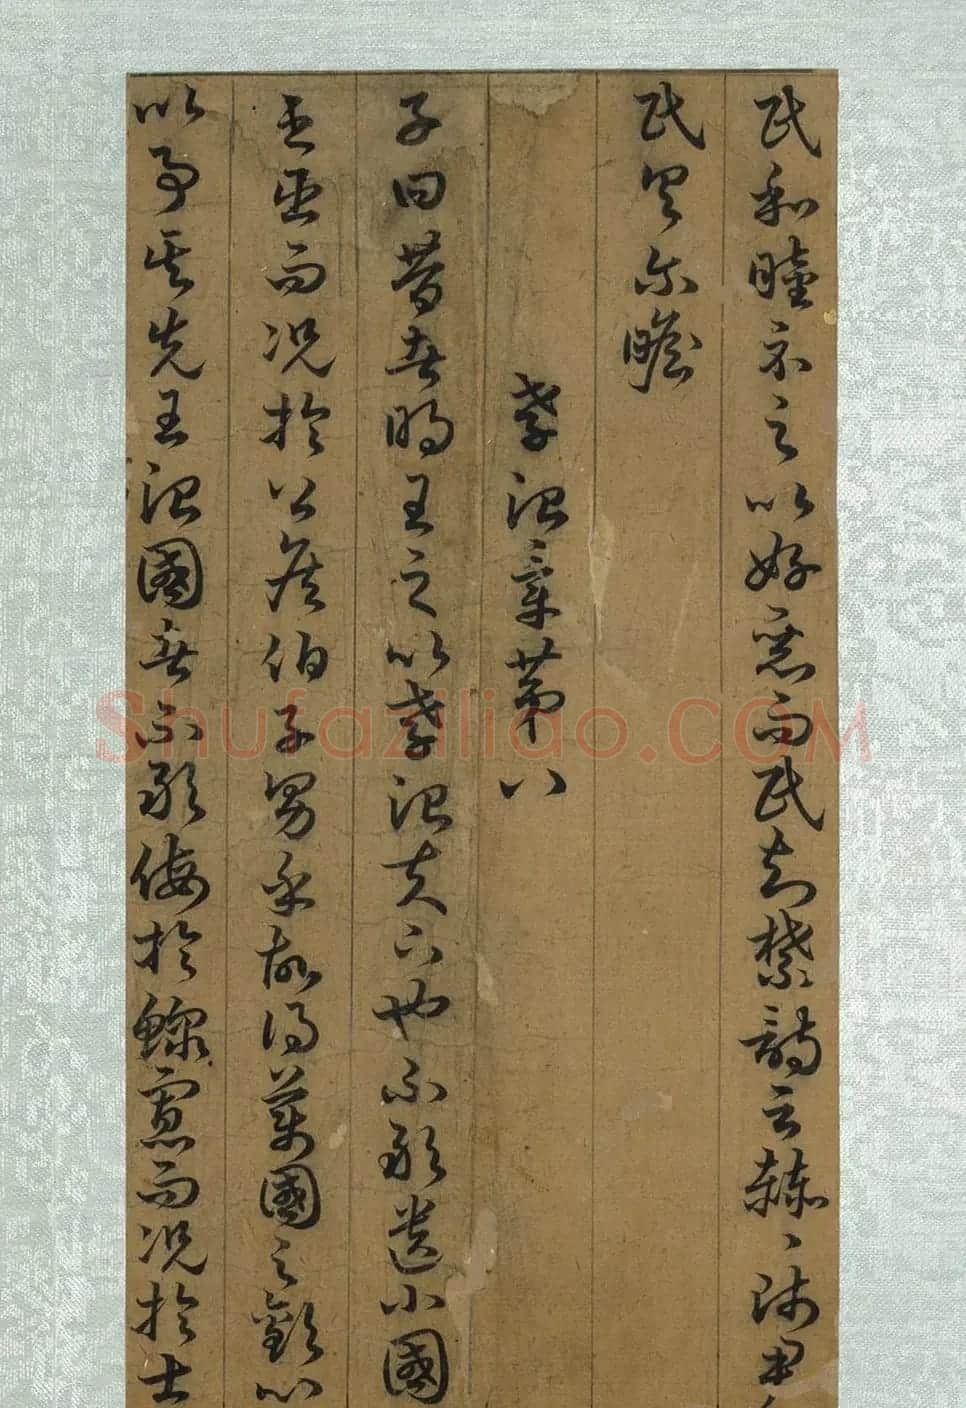 民和睦示之以好惡而民知禁詩云赫〻師尹
民具尔瞻
孝治章第八
子曰昔者明王之以孝治天下也不敢遺小國
之臣而況於公侯伯子男乎故得萬國之歡心
以事其先王治國者不敢侮於鰥寡而況於士
Shufazilido.COM